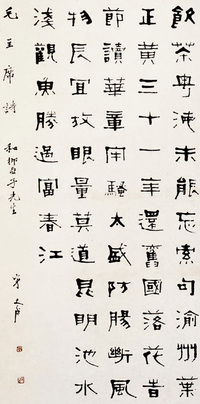 飲茶粤海未能忘索句渝州葉
正黃三十一年還舊國落花旹
節讀華章牢騷太盛防腸斷風
物長宜放眼量莫道昆明池水
淺觀魚勝過富春江
毛主席詩 和柳亞子先生